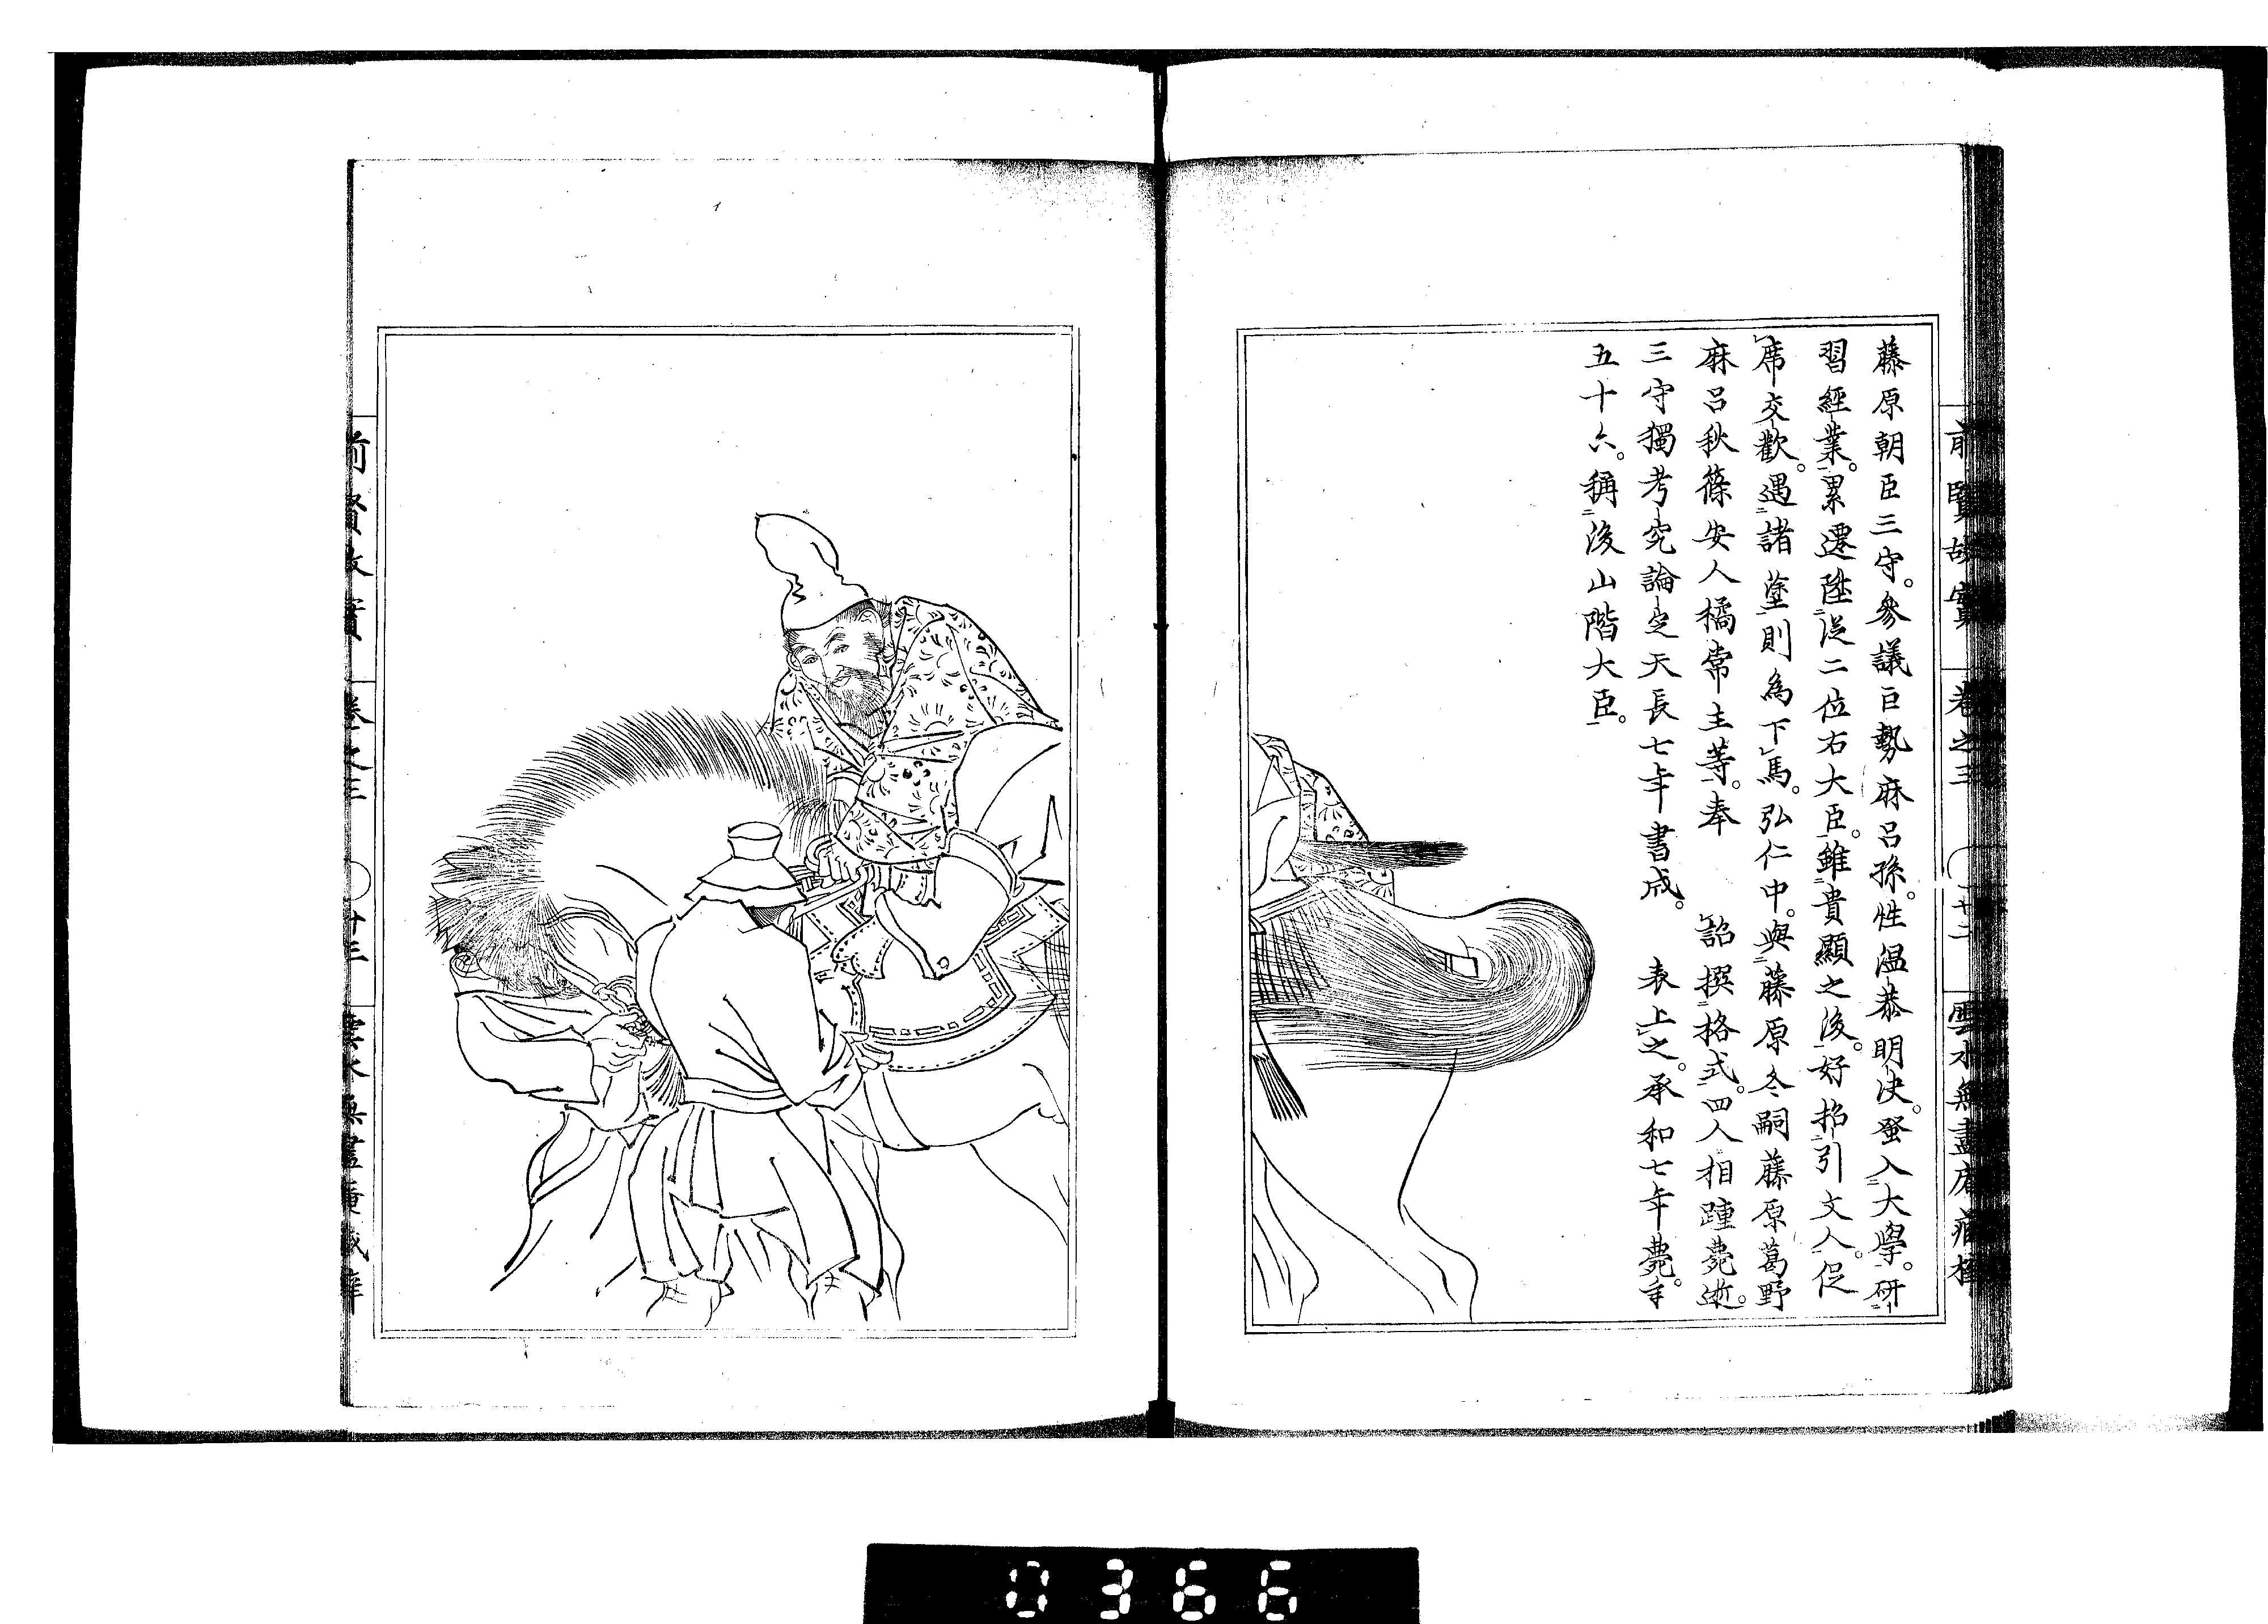 藤原朝臣三守。參議巨勢麻呂孫。性温恭明决。蚤入大學。研
習經業。累遷陞従二位右大臣。雖貴顯之後。好招引文人。促
席交歡。遇諸塗則為下馬。弘仁中。與藤原冬嗣藤原葛野
麻呂秋篠安人橘常主等。奉　詔撰格式。四人相踵薨逝。
三守獨考究論定天長七年書成。　表上之。承和七年薨。年
五十六。稱後山階大臣。
前賢故實　卷之三
0366